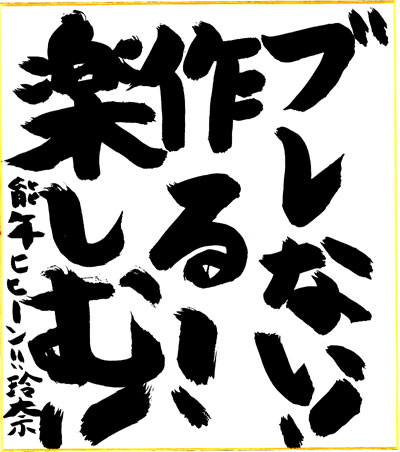 ブレない!
作る!
楽しむ!!
能年ヒヒーン!!!玲奈